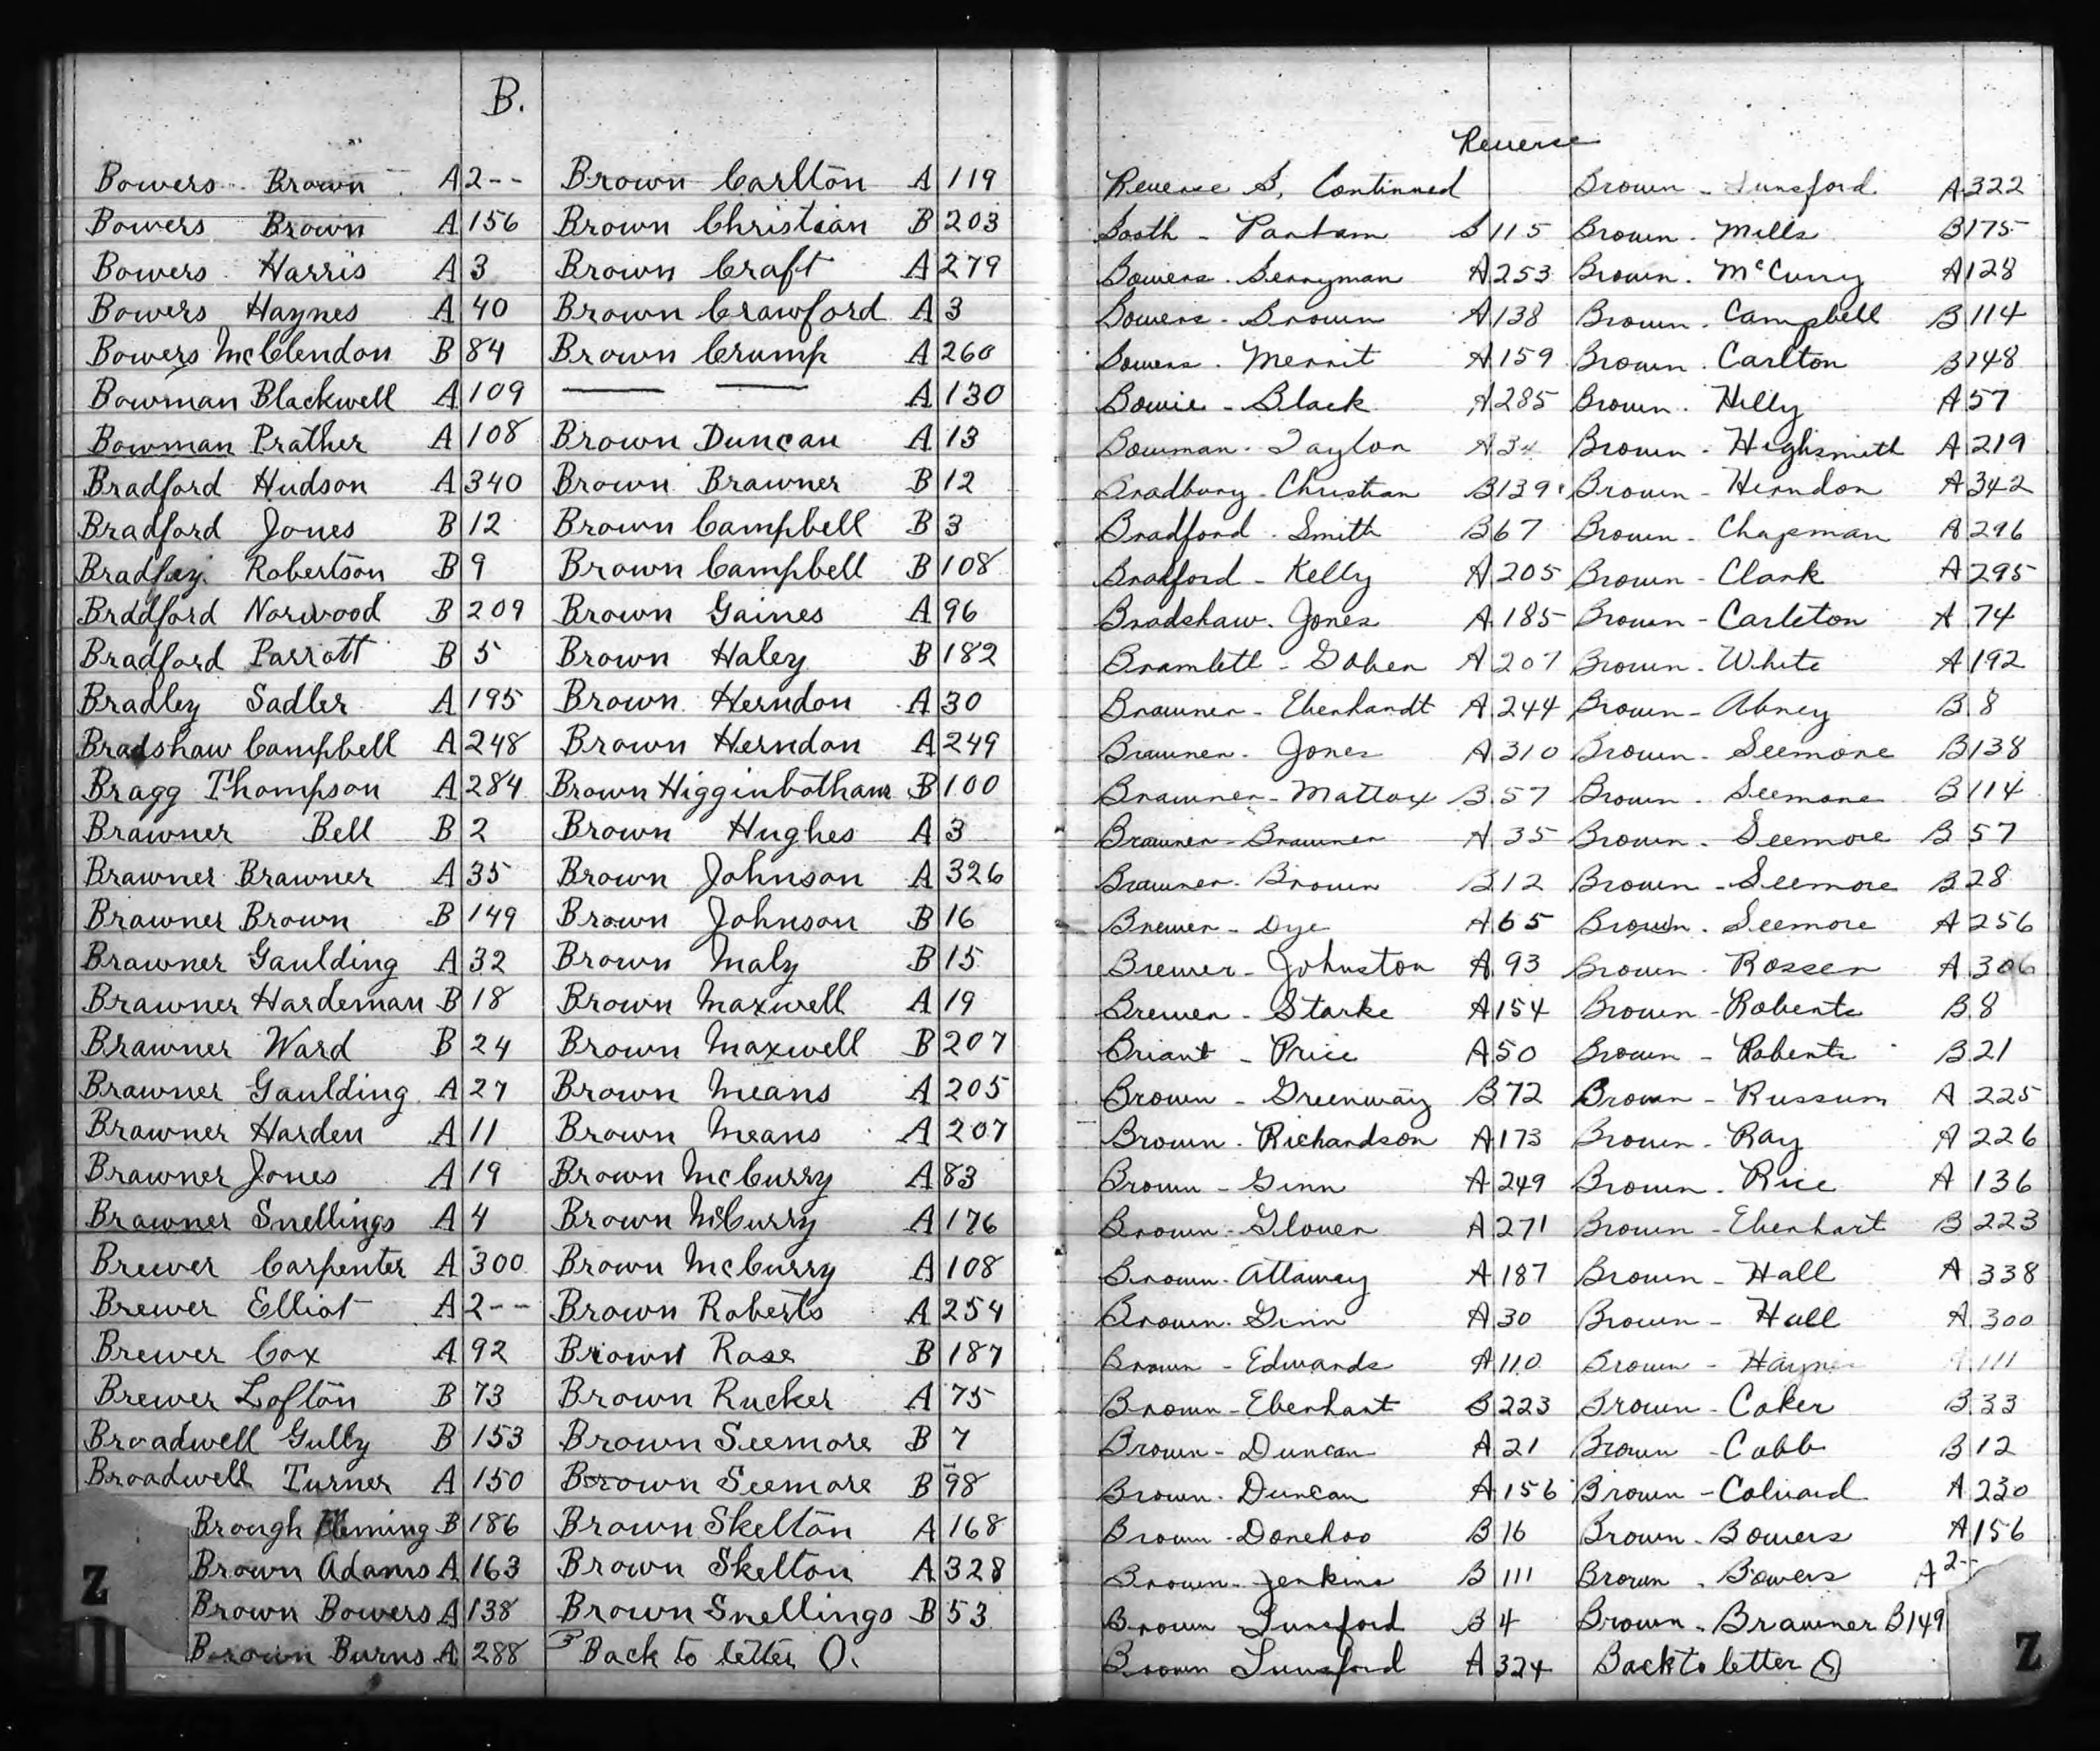 B.
Bowers Brown A 2--
Bowers Brown A 156
Bowers Harris A 3
Bowers Haynes A 40
Bowers McClendon B 84
Bowman Blackwell A 109
Bowman Prather A 108
Bradford Hudson A 340
Bradford Jones B 12
Robertson B 9
Bradford Norwood B 209
Bradford Parrott B 5
Bradley Sadler A 195
Bradshaw Campbell A 248
Bragg Thompson A 284
Brawner Bell B 2
Brawner Brawner A 35
Brawner Brown B 149
Brawner Gaulding A 32
Brawner Hardeman B 18
Brawner Ward B 24
Brawner Gaulding A 27
Brawner Harden A 11
Brawner Jones A 19
Brawner Snellings A 4
Brewer Carpenter A 300
Brewer Elliot A 2--
Brewer Cox A 92
Brewer Lofton B 73
Broadwell Gully B 153
Broadwell Turner A 150
Brough Fleming B 186
Brown Adams A 163
Brown Bowers A 138
Brown Burns A 288
Z
Brown Carlton A 119
Brown Christian B 203
Brown Craft A 279
Brown Crawford A 3
Brown Crump A 260
—— —— A 130
Brown Duncan A 13
Brown Brawner B 12
Brown Campbell B 3
Brown Campbell B 108
Brown Gaines A 96
Brown Haley B 182
Brown Herndon A 30
Brown Herndon A 249
Brown Higginbotham B 100
Brown Hughes A 3
Brown Johnson A 326
Brown Johnson B 16
Brown Maly B 15
Brown Maxwell A 19
Brown Maxwell B 207
Brown Means A 205
Brown Means A 207
Brown McCurry A 83
Brown McCurry A 176
Brown McCurry A 108
Brown Roberts A 254
Brown Rose B 187
Brown Rucker A 75
Brown Seemore B 7
Brown Seemore B 98
Brown Skelton A 168
Brown Skelton A 328
Brown Snellings B 53
Back to letter O.
Reverse
Reverse B, Continued
Booth - Parham B 115
Bowers - Berryman A 253
Bowers - Brown A 138
Bowers - Merrit A 159
Bowie - Black A 285
Bowman - Taylor A 34
Bradbury - Christian B 139
Bradford - Smith B 67
Bradford - Kelly A 205
Bradshaw - Jones A 185
Bramlett - Gober A 207
Brawner - Eberhardt A 244
Brawner - Jones A 310
Brawner - Mattox B 57
Brawner - Brawner A 35
Brawner - Brown B 12
Brewer - Dye A 65
Brewer - Johnston A 93
Brewer - Starke A 154
Briant - Price A 50
Brown - Greenway B 72
Brown - Richardson A 173
Brown - Ginn A 249
Brown - Glover A 271
Brown - Attaway A 187
Brown - Ginn A 30
Brown - Edwards A 110
Brown - Eberhart B 223
Brown - Duncan A 21
Brown - Duncan A 156
Brown - Donehoo B 16
Brown - Jenkins B 111
Brown Lunsford B 4
Brown Lunsford A 324
Brown - Lunsford A 322
Brown - Mills B 175
Brown - McCurry A 128
Brown - Campbell B 114
Brown - Carlton B 148
Brown - Hilly A 57
Brown - Highsmith A 219
Brown - Herndon A 342
Brown - Chapman A 296
Brown - Clark A 295
Brown - Carleton A 74
Brown - White A 192
Brown - Abney B 8
Brown - Seemore B 138
Brown - Seemore B 114
Brown - Seemore B 57
Brown - Seemore B 28
Brown - Seemore A 256
Brown - Rosser A 306
Brown - Roberts B 8
Brown - Roberts B 21
Brown - Russum A 225
Brown - Ray A 226
Brown - Rice A 136
Brown - Eberhart B 223
Brown - Hall A 338
Brown - Hall A 300
Brown - Haynes A 111
Brown - Coker B 33
Brown - Cobb B 12
Brown - Colvard A 230
Brown - Bowers A 156
Brown - Bowers A 2--
Brown - Brawner B 149
Back to letter O
Z